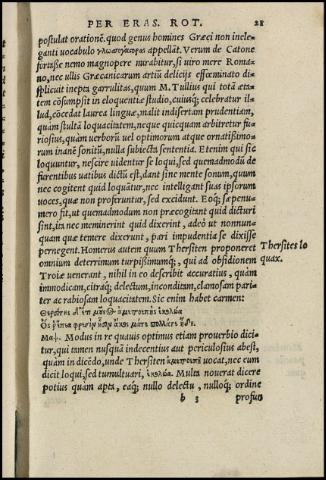 PER ERAS. ROT. 28
postulat orationē. quod genus homines Græci non inele-
ganti uocabulo γλωσσάργους appellāt. Verum de Catone
fortasse nemo magnopere mirabitur, si uiro mere Roma-
no, nec ullis Græcanicarum artiū delicijs effœminato di-
splicuit inepta garrulitas, quum M. Tullius qui totā ætа-
tem cōsumpsit in eloquentiæ studio, cuiusq; celebratur il-
lud, cōcedat laurea linguæ, malit indisertam prudentiam,
quam stultā loquacitatem, neque quicquam arbitretur fu-
riosius, quàm uerborū uel optimorum atque ornatissimo-
rum inanē sonitū, nulla subiecta sententia. Etenim qui sic
loquuntur, nescire uidentur se loqui, sed quemadmodū de
furentibus uatibus dictū est, dant sine mente sonum, quum
nec cogitent quid loquātur, nec intelligant suas ipsorum
uoces, quæ non proferuntur, sed excidunt. Eoq; sæpenu-
mero fit, ut quemadmodum non præcogitant quid dicturi
sint, ita nec meminerint quid dixerint, adeò ut nonnun-
quam quæ temere dixerunt, pari impudentia se dixisse
pernegent. Homerus autem quum Thersiten proponeret
Thersites lo
quax.
omnium deterrimum turpissimumq;, qui ad obsidionem
Troiæ uenerant, nihil in eo describit accuratius, quàm
immodicam, citraq; delectum, inconditam, clamosam pariter
ac rabiosam loquacitatem. Sic enim habet carmen:
Θερσίτης δ' ἔτι μοῦνος ἀμετροεπὴς ἐκολώα
Ὃς ῥ' ἔπεα φρεσὶν ᾗσιν ἄκοσμά τε πολλά τε ᾔδει.
Μαψ. Modus in re quauis optimus etiam prouerbio dici-
tur, qui tamen nusquā indecentius aut periculosius abest,
quam in dicēdo, unde Thersiten ἀμετροεπῆ uocat, nec eum
dicit loqui, sed tumultuari, ἐκολώα. Multa nouerat dicere
potius quàm apta, eaq; nullo delectu, nulloq; ordine
b 3 profun